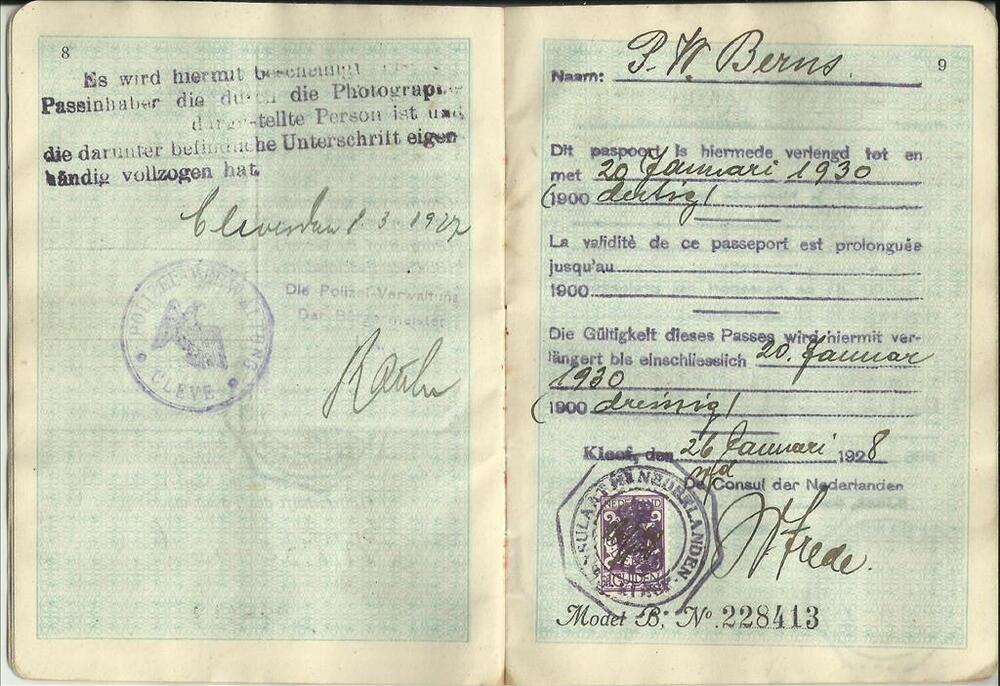 8
Es wird hiermit bescheinigt
Passinhaber die durch die Photographie
dargestellte Person ist und
die darunter befindliche Unterschrift eigen-
händig vollzogen hat.
1 3 1927
Die Polizei-Verwaltung
Der Bürgermeister
POLIZEI-VERWALTUNG
CLEVE
9
Naam: P. W. Berns.
Dit paspoort is hiermede verlengd tot en
met 20 Januari 1930
(1900 dertig)
La validité de ce passeport est prolonguée
jusqu'au
1900
Die Gültigkeit dieses Passes wird hiermit ver-
längert bis einschliesslich 20. Januar
1930
(1900 dreissig)
Kleef, den 26 Januari 1928
De Consul der Nederlanden
NEDERLANDEN
NEDERLAND
GULDEN
Model B, No 228413